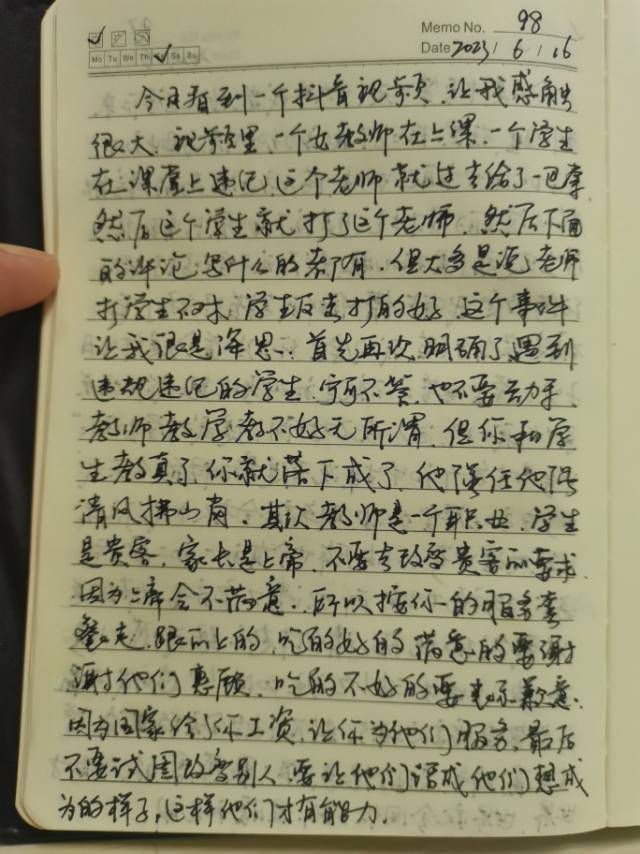 Memo No. 98
Mo Tu We Th Fr Sa Su
Date 2023 / 6 / 16
今日看到一个抖音视频，让我感触
很大，视频里，一个女教师在上课，一个学生
在课堂上违纪，这个老师就过去给了一巴掌
然后这个学生就打了这个老师，然后下面
的评论写什么的都有，但大多是说老师
打学生不对，学生反击打的好，这个事件
让我很是深思：首先再次明确了遇到
违规违纪的学生，宁可不管，也不要动手，
教师教学教不好无所谓，但你和学
生教真了，你就落下成了，他强任他强
清风拂山岗，其次教师是一个职业，学生
是贵客，家长是上帝，不要去改变贵客的要求
因为上帝会不满意，所以按你的服务套
餐走，跟的上的，吃的好的满意的要谢
谢他们惠顾，吃的不好的要表示歉意，
因为国家给了你工资，让你为他们服务，最后
不要试图改变别人，要让他们活成他们想成
为的样子，这样他们才有能力。